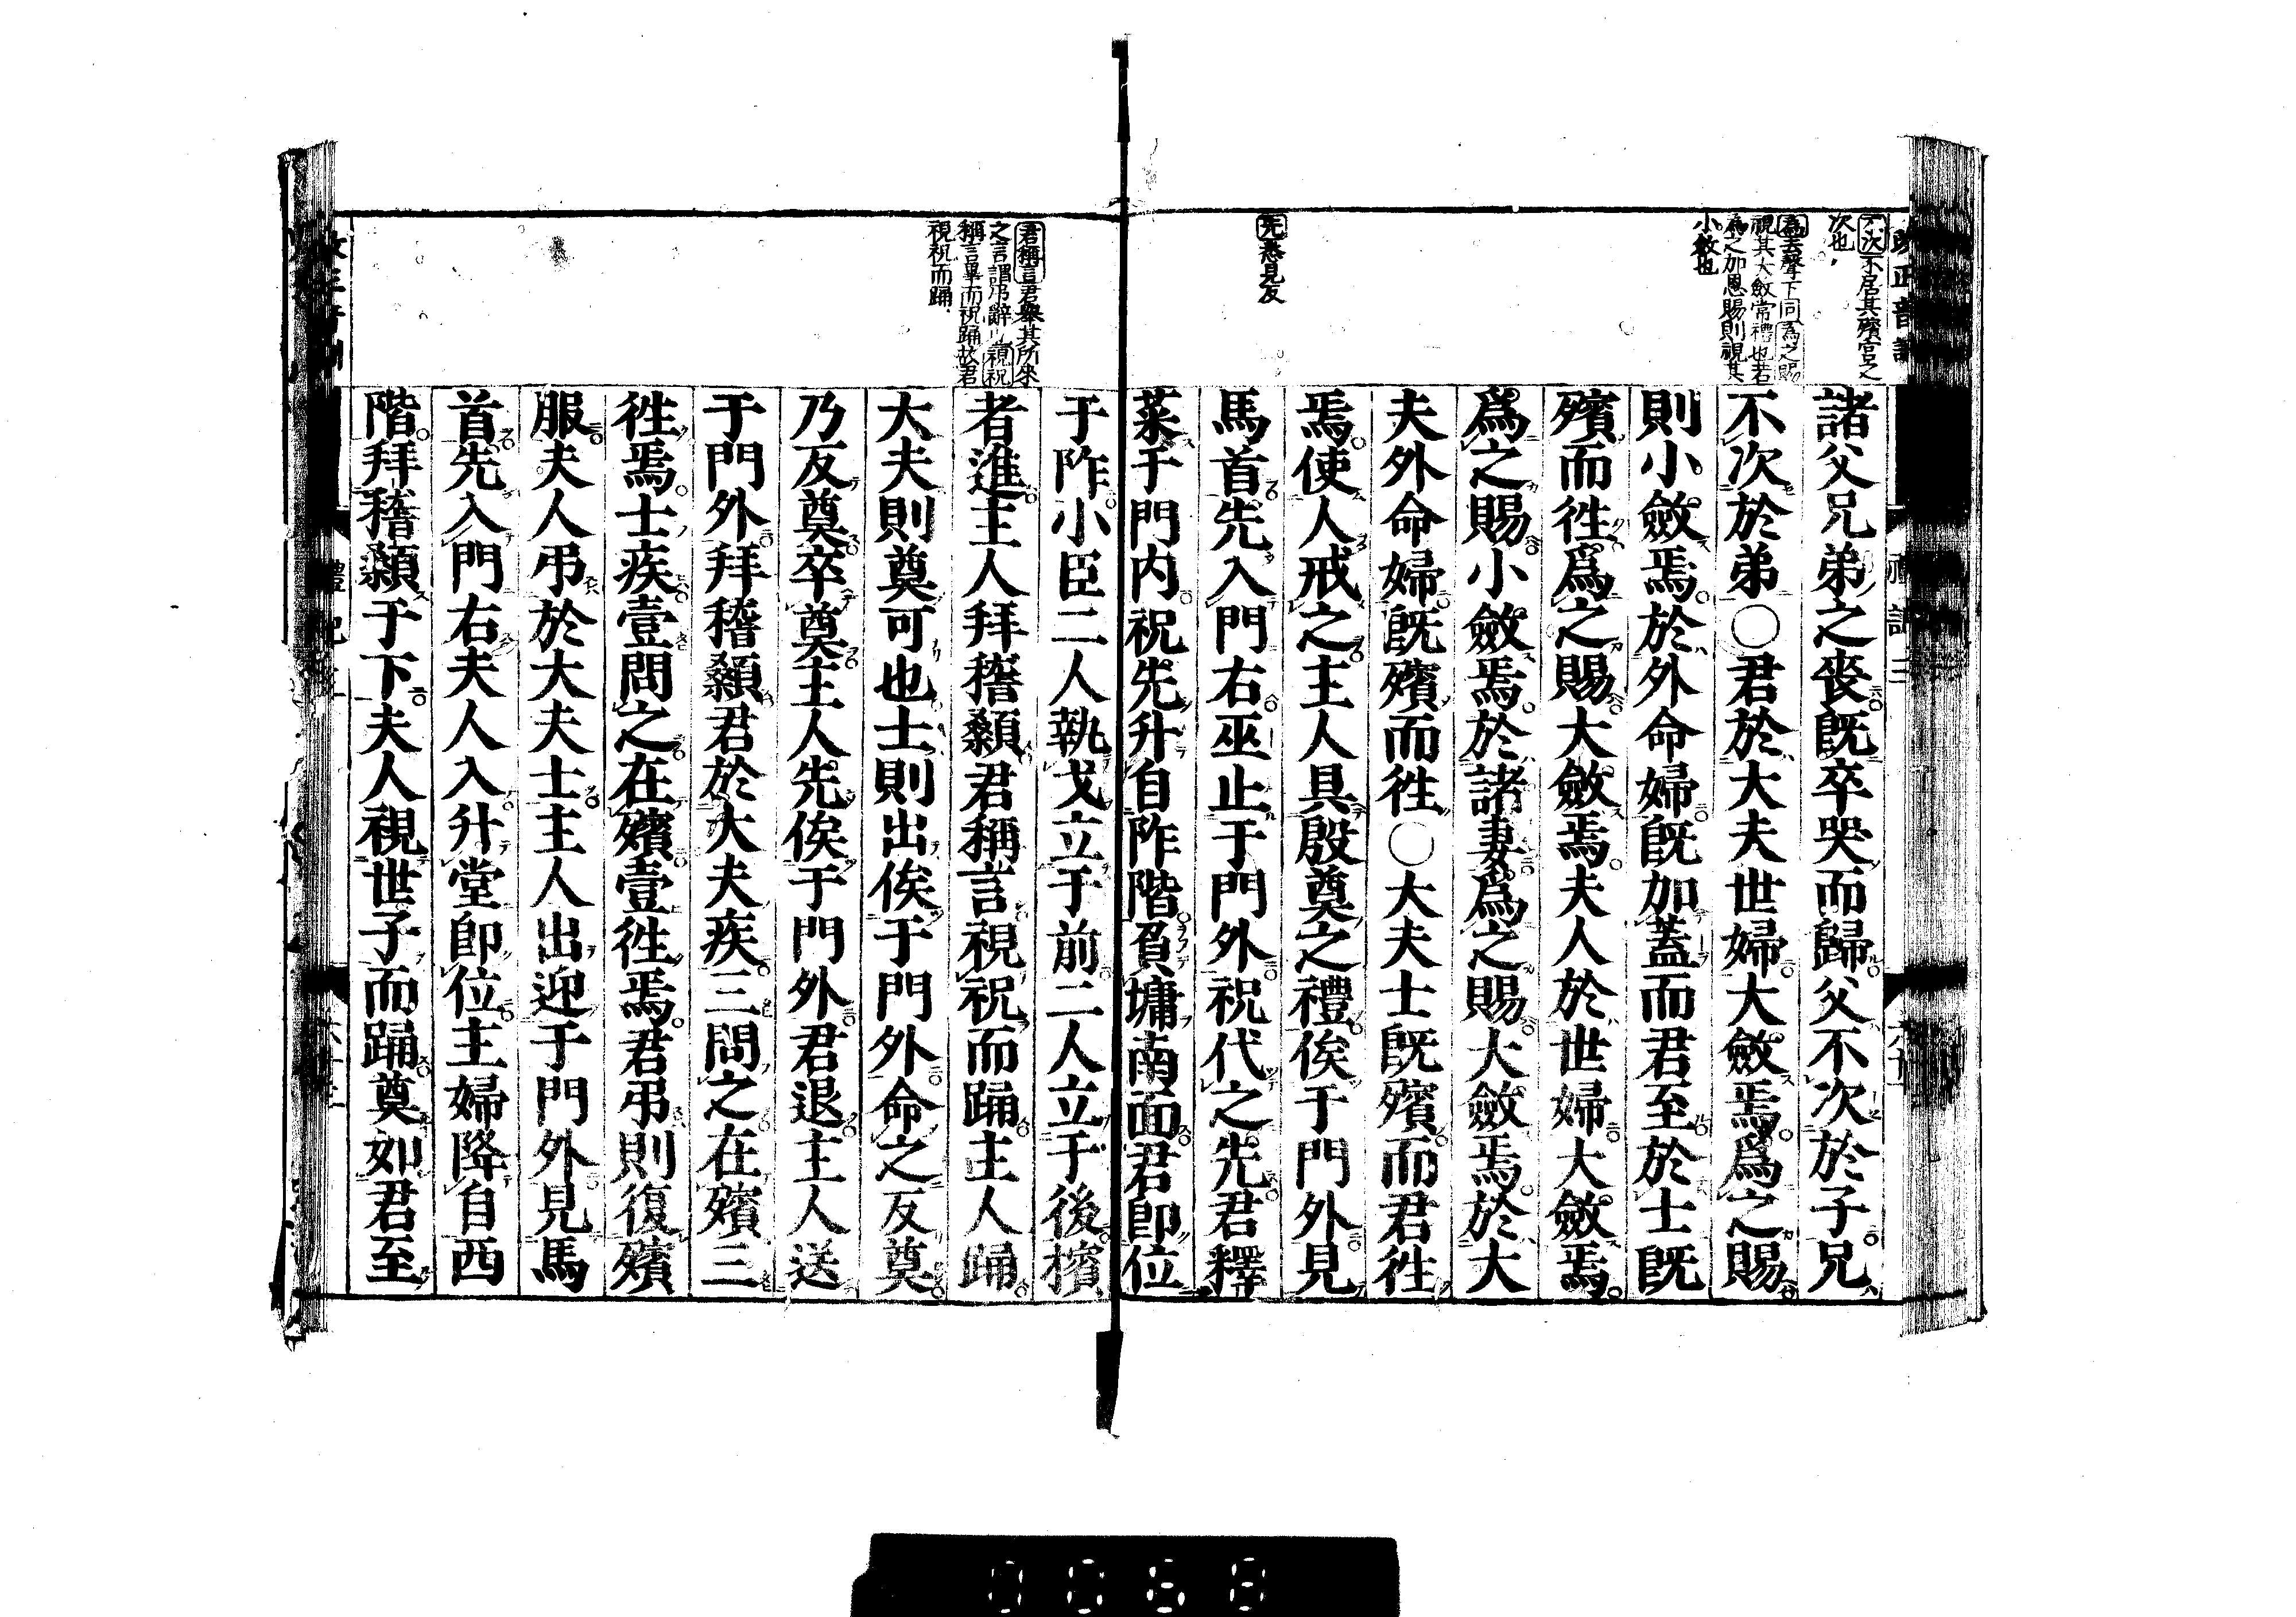 不次不居其殯宮之
次也
爲去聲下同爲之賜
視其大斂常禮也若
爲之加恩賜則視其
小斂也
先悉見反
諸父兄弟之喪既卒哭而歸父不次於子兄
不次於弟○君於大夫世婦大斂焉爲之賜
則小斂焉於外命婦既加蓋而君至於士既
殯而徃爲之賜大斂焉夫人於世婦大斂焉
爲之賜小斂焉於諸妻爲之賜大斂焉於大
夫外命婦既殯而徃○大夫士既殯而君徃
焉使人戒之主人具殷奠之禮俟于門外見
馬首先入門右巫止于門外祝代之先君釋
菜于門内祝先升自阼階負墉南面君卽位
君稱言君舉其所來
之言謂弔辭也視祝
稱言畢而祝踊故君
視祝而踊
于阼小臣二人執戈立于前二人立于後擯
者進主人拜稽顙君稱言視祝而踊主人踊
大夫則奠可也士則出俟于門外命之反奠
乃反奠卒奠主人先俟于門外君退主人送
于門外拜稽顙君於大夫疾三問之在殯三
徃焉士疾壹問之在殯壹徃焉君弔則復殯
服夫人弔於大夫士主人出迎于門外見馬
首先入門右夫人入升堂卽位主婦降自西
階拜稽顙于下夫人視世子而踊奠如君至
禮記